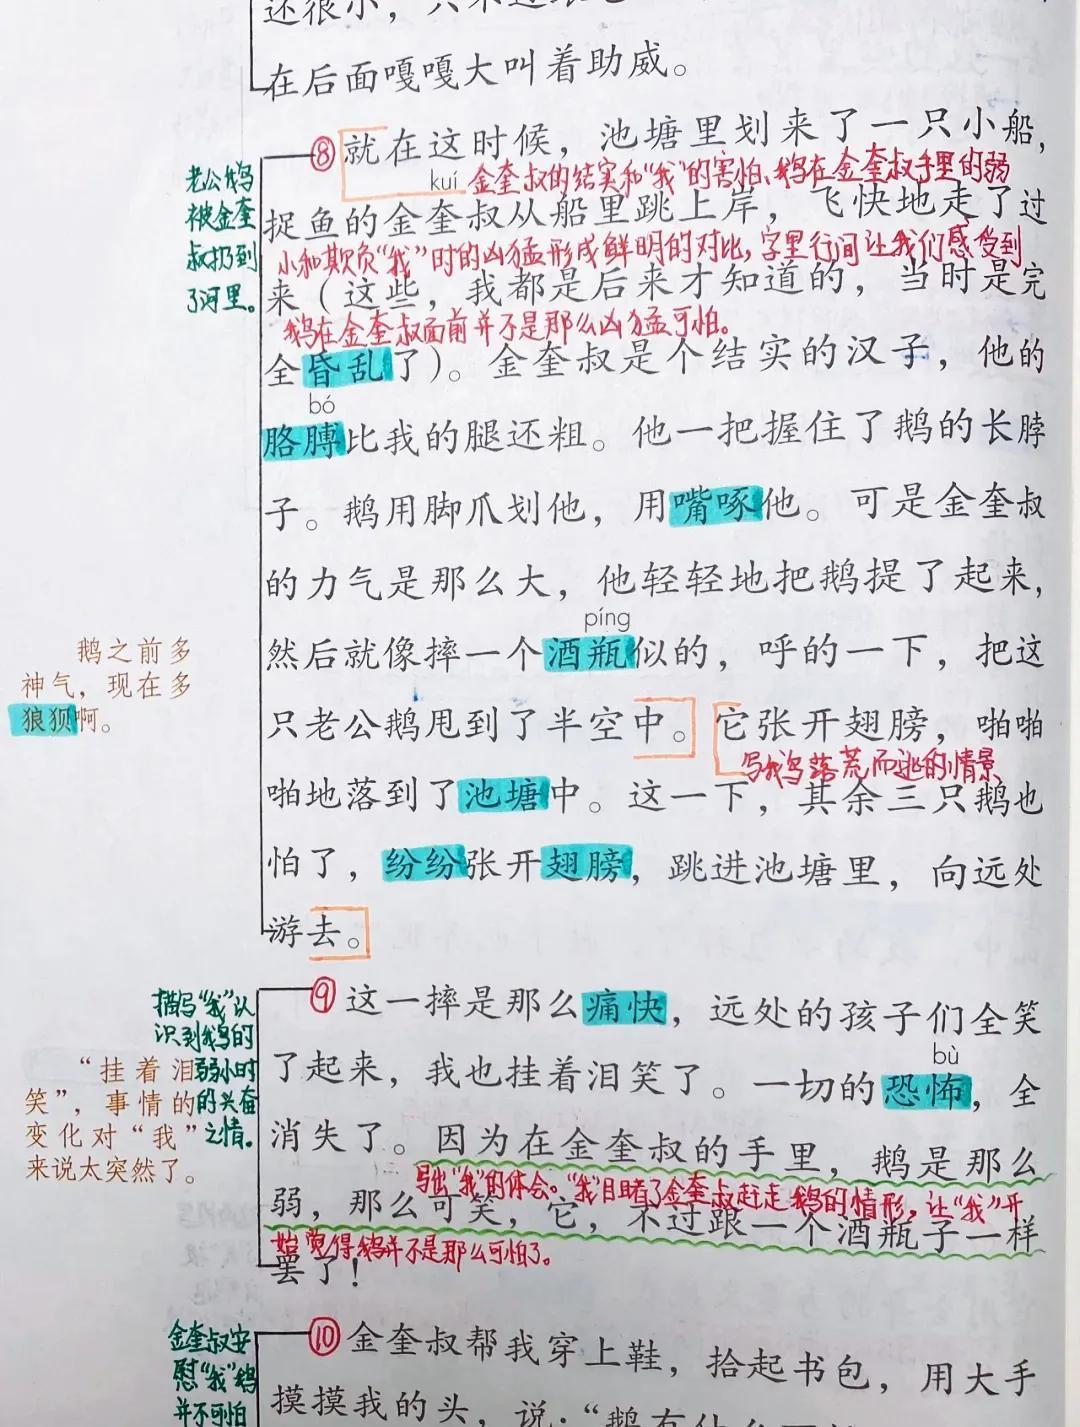 在后面嘎嘎大叫着助威。
⑧就在这时候，池塘里划来了一只小船，
kuí
金奎叔的结实和“我”的害怕、鹅在金奎叔手里的弱
捉鱼的金奎叔从船里跳上岸，飞快地走了过
小和欺负“我”时的凶猛形成鲜明的对比，字里行间让我们感受到
来（这些，我都是后来才知道的，当时是完
鹅在金奎叔面前并不是那么凶猛可怕。
全昏乱了）。金奎叔是个结实的汉子，他的
bó
胳膊比我的腿还粗。他一把握住了鹅的长脖
子。鹅用脚爪划他，用嘴啄他。可是金奎叔
的力气是那么大，他轻轻地把鹅提了起来，
píng
然后就像摔一个酒瓶似的，呼的一下，把这
只老公鹅甩到了半空中。它张开翅膀，啪啪
写鹅落荒而逃的情景
啪地落到了池塘中。这一下，其余三只鹅也
怕了，纷纷张开翅膀，跳进池塘里，向远处
游去。
老公鹅
被金奎
叔扔到
了河里。
鹅之前多
神气，现在多
狼狈啊。
⑨这一摔是那么痛快，远处的孩子们全笑
了起来，我也挂着泪笑了。一切的恐怖，全
bù
消失了。因为在金奎叔的手里，鹅是那么
写出“我”的体会。“我”目睹了金奎叔赶走鹅的情形，让“我”开
弱，那么可笑，它，不过跟一个酒瓶子一样
始觉得鹅并不是那么可怕了。
罢了！
描写“我”认
识到鹅的
弱小时
的兴奋
之情。
“挂着泪
笑”，事情的
变化对“我”
来说太突然了。
⑩金奎叔帮我穿上鞋，拾起书包，用大手
摸摸我的头，说：“鹅有什么
金奎叔安
慰“我”鹅
并不可怕